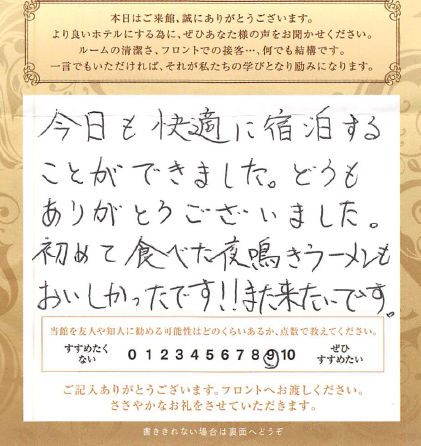 本日はご来館、誠にありがとうございます。
より良いホテルにする為に、ぜひあなた様の声をお聞かせください。
ルームの清潔さ、フロントでの接客…、何でも結構です。
一言でもいただければ、それが私たちの学びとなり励みになります。
今日も快適に宿泊する
ことができました。どうも
ありがとうございました。
初めて食べた夜鳴きラーメンも
おいしかったです!!また来たいです。
当館を友人や知人に勧める可能性はどのくらいあるか、点数で教えてください。
すすめたくない 0 1 2 3 4 5 6 7 8 9 10 ぜひすすめたい
ご記入ありがとうございます。フロントへお渡しください。
ささやかなお礼をさせていただきます。
書ききれない場合は裏面へどうぞ